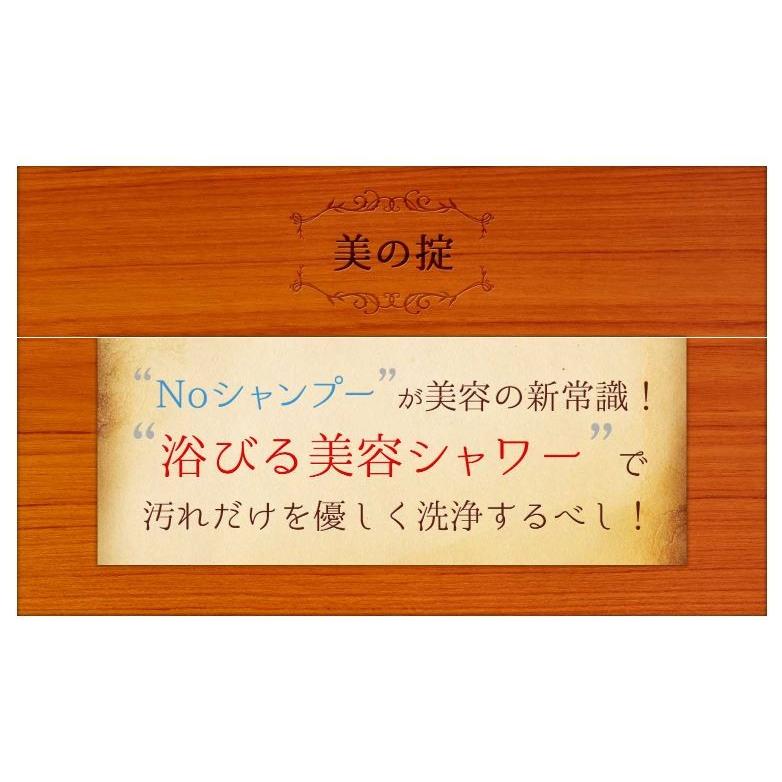 美の掟
“Noシャンプー”が美容の新常識！
“浴びる美容シャワー”で
汚れだけを優しく洗浄するべし！